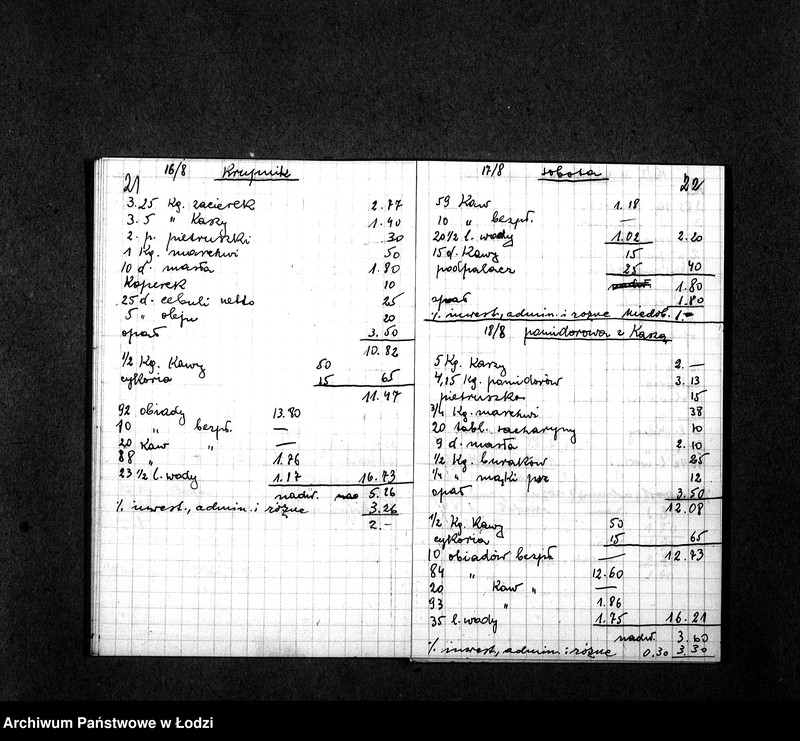 21
16/8 Krupnik
3.25 Kg. zacierek 2.77
3.5 " Kaszy 1.40
2. p. pietruszki 30
1 Kg. marchwi 50
10 d. masła 1.80
Koperek 10
25 d. cebuli netto 25
5 " oleju 20
opał 3.50
10.82
1/2 Kg. Kawy 50
cykoria 15 65
11.47
92 obiady 13.80
10 " bezpł. —
20 Kaw " —
88 " 1.76
23 1/2 l. wody 1.17 16.73
nadw. 5.26
% inwest., admin. i różne 3.26
2.-
17/8 sobota 22
59 Kaw 1.18
10 " bezpł. —
20 1/2 l. wody 1.02 2.20
15 d. Kawy 15
podpałacz 25 40
1.80
opał 1.80
% inwest., admin. i różne niedob. 1.-
18/8 pomidorowa z Kaszą
5 Kg. Kaszy 2.—
4,15 Kg. pomidorów 3.13
pietruszka 15
3/4 Kg. marchwi 38
20 tabl. sacharyny 10
9 d. masła 2.10
1/2 Kg. buraków 25
1/4 " mąki 12
opał 3.50
12.08
1/2 Kg. Kawy 50
cykoria 15 65
10 obiadów bezpł. — 12.73
84 " 12.60
20 Kaw " —
93 " 1.86
35 l. wody 1.75 16.21
nadw. 3.60
% inwest., admin. i różne 0.30 3.30
Archiwum Państwowe w Łodzi